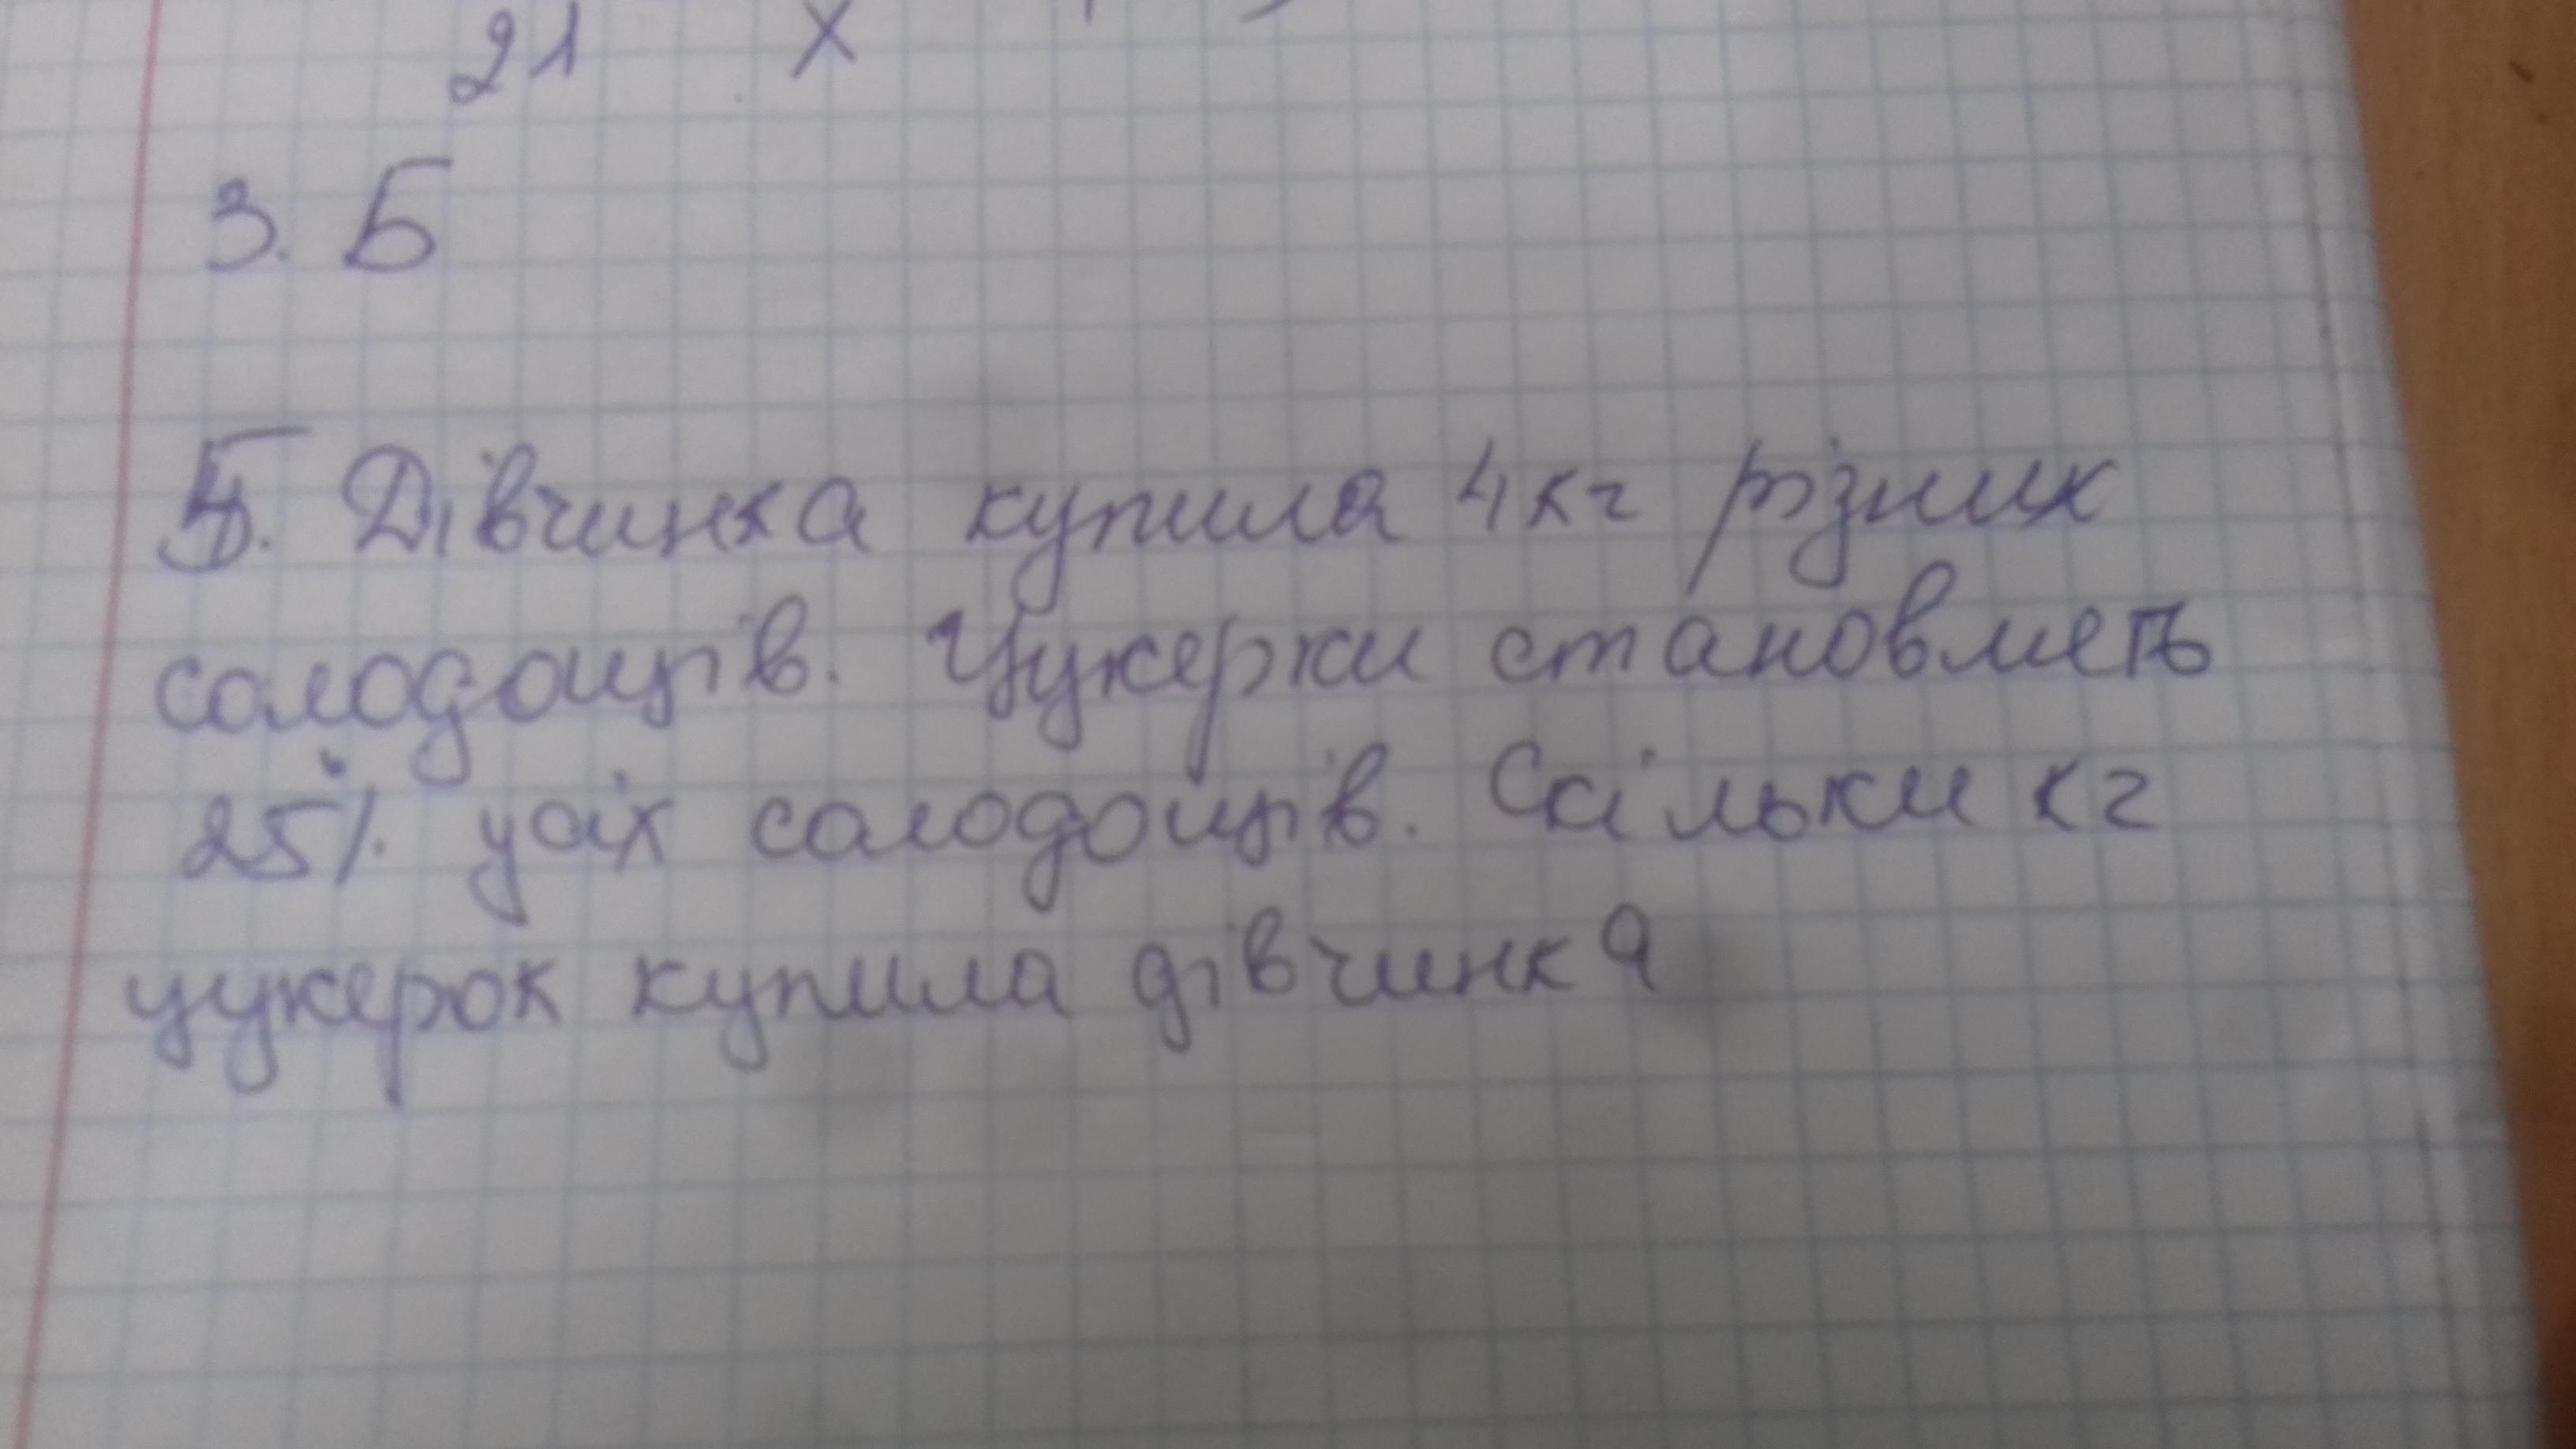 21 х
3. Б
5. Дівчинка купила 4кг різних
солодощів. Цукерки становлять
25% усіх солодощів. Скільки кг
цукерок купила дівчинка